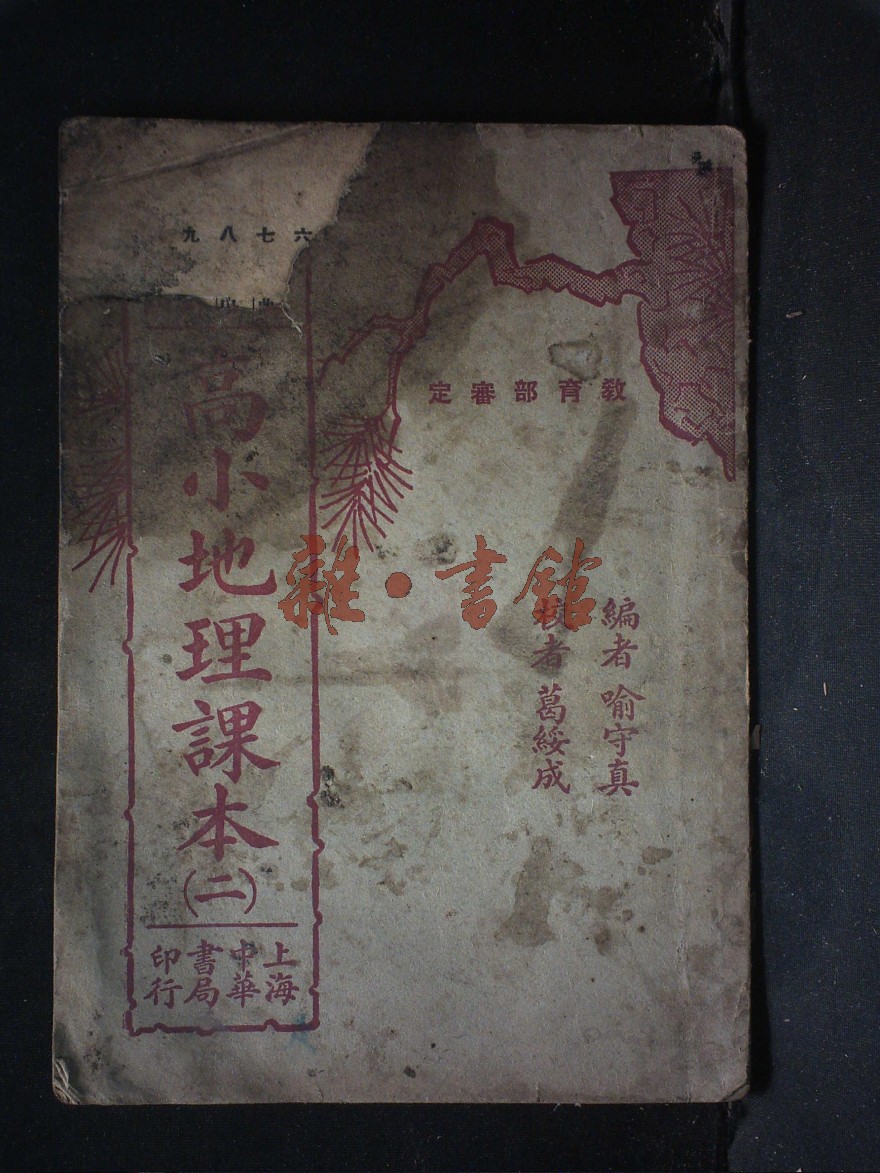 教育部審定
編者 喻守真
校者 葛綏成
六七八九
高小地理課本(二)
上海中華書局印行
雜·書館